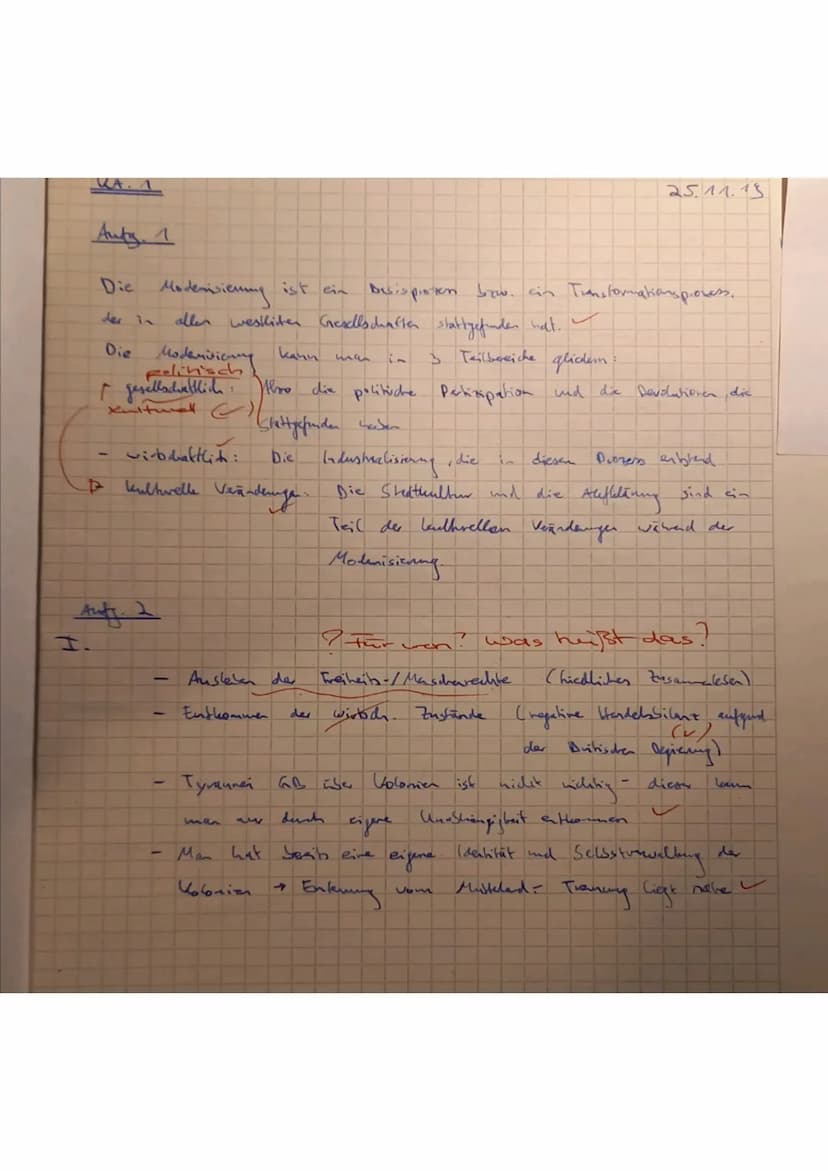 KA. 1
25.11.19
Aufg. 1
Die Modernisierung ist ein Basisprozess bzw. ein Transformationsprozess,
der in allen westlichen Gesellschaften stattgefunden hat.
Die Modernisierung kann man in 3 Teilbereiche gliedern:
politisch
gesellschaftlich: die politische Partizipation und die Revolutionen, die
kulturell (✓)
stattgefunden haben
- wirtschaftlich: Die Industrialisierung, die in diesen Prozess
kulturelle Veränderungen. Die Stadtkultur und die Aufklärung sind ein
Teil der kulturellen Veränderungen während der
Modernisierung.
Aufg. 2
I.
? Für wen? was heißt das?
- Ausleben der Freiheits-/Menschenrechte (friedliches Zusammenleben)
- Entkommen der wirtsch. Zustände (negative Handelsbilanz aufgrund
(✓)
der Britischen Regierung)
- Tyrannei GB über Kolonien ist nicht richtig - dieser kann
man nur durch eigene Unabhängigkeit entkommen
- Man hat bereits eine eigene Identität und Selbstverwaltung der
Kolonien → vom Mutterland = Trennung liegt nahe